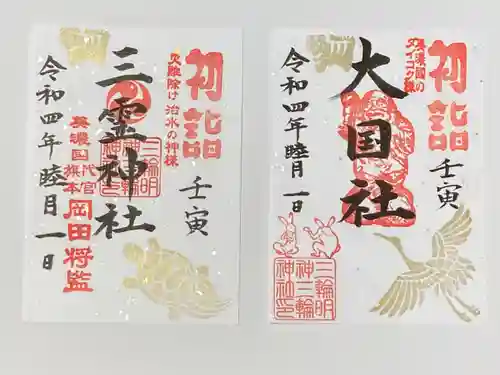 初詣
壬寅
火難除け 治水の神様
三霊神社
美濃国
代官
旗本
岡田将監
令和四年睦月一日
初詣
壬寅
美濃國の
ダイコク様
大国社
令和四年睦月一日
三輪明
神三輪
神社印